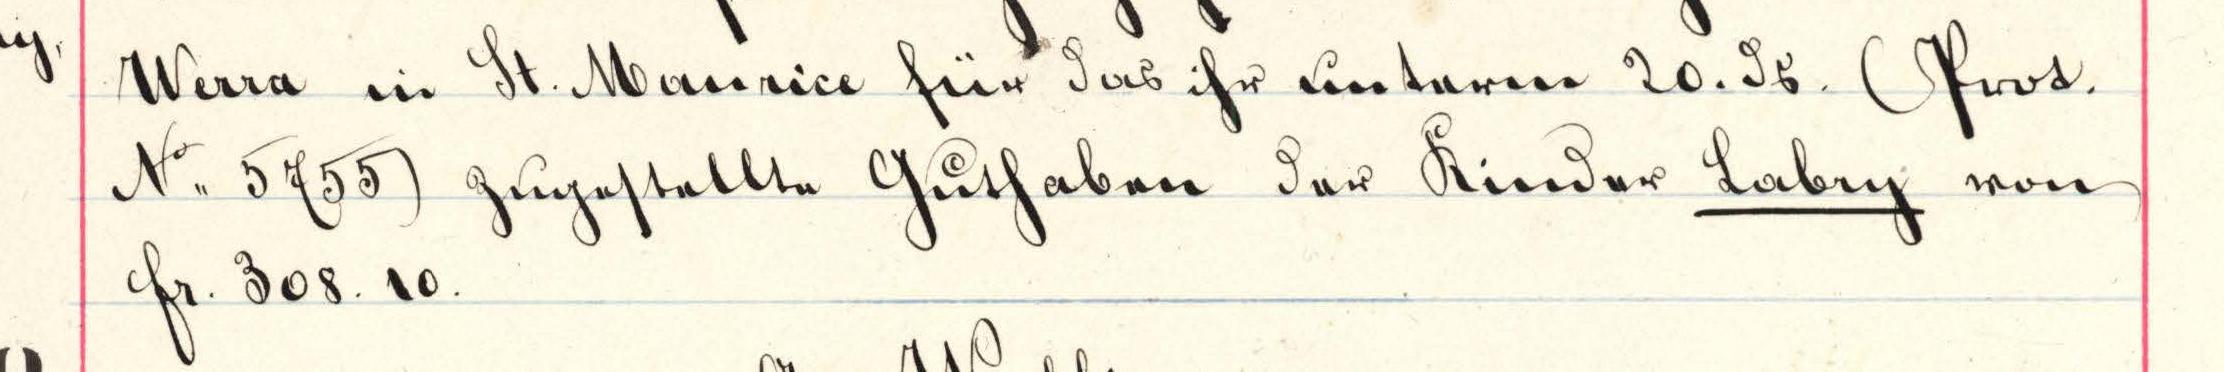 Werra in St. Maurice für das ihr unterm 20. ds. (Prot.
No. 5755) zugestellte Guthaben der Kinder Labry von
fr. 308.10.